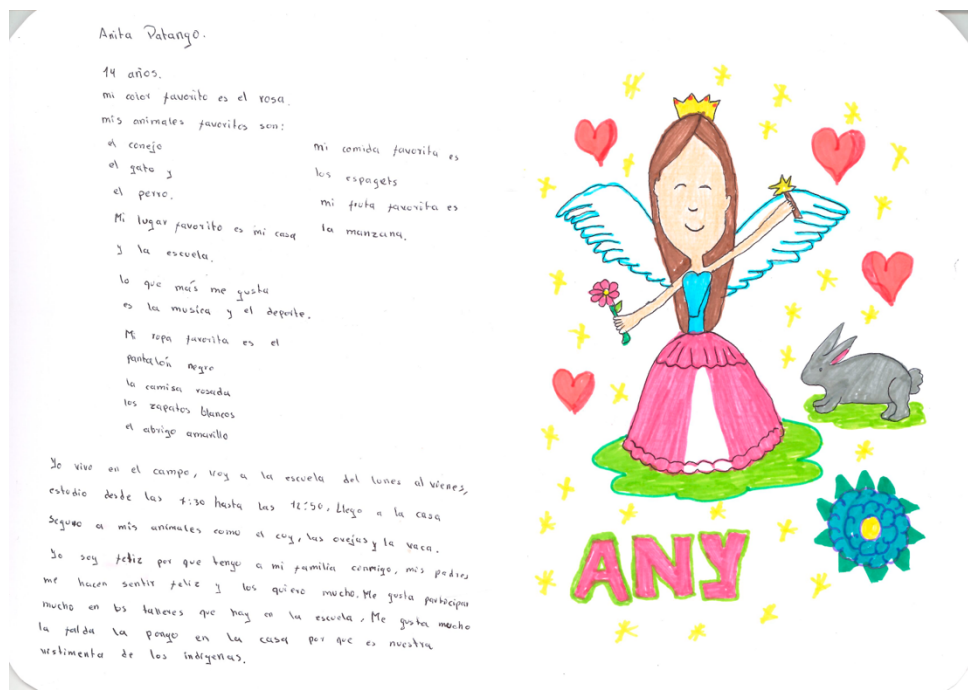 Anita Patango.
14 años.
mi color favorito es el rosa.
mis animales favoritos son:
el conejo
el gato y
el perro.
Mi lugar favorito es mi casa
y la escuela.
lo que más me gusta
es la musica y el deporte.
Mi ropa favorita es el
pantalón negro
la camisa rosada
los zapatos blancos
el abrigo amarillo
mi comida favorita es
los espagets
mi fruta favorita es
la manzana.
Yo vivo en el campo, voy a la escuela del lunes al viernes,
estudio desde las 7:30 hasta las 12:50. Llego a la casa
a mis animales como el cuy, las ovejas y la vaca.
Yo soy feliz por que tengo a mi familia conmigo, mis padres
me hacen sentir feliz y los quiero mucho. Me gusta participar
mucho en los talleres que hay en la escuela. Me gusta mucho
la falda la pongo en la casa por que es nuestra
vestimenta de los indígenas.
ANY